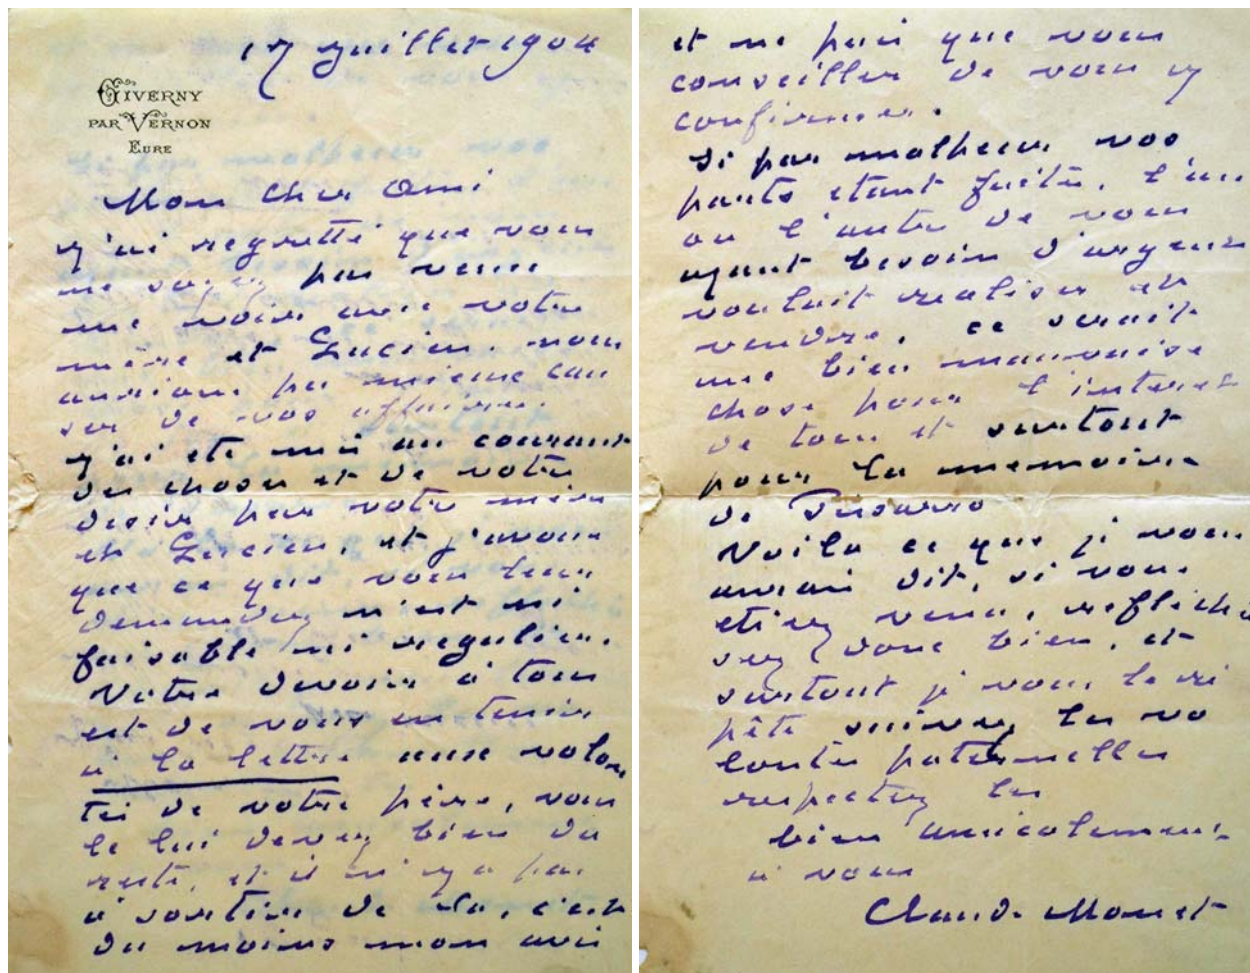 17 juillet 1904
GIVERNY
PAR VERNON
EURE
Mon cher Ami
j'ai regretté que vous
ne soyez pas venu
me voir avec votre
mère et Lucien. nous
aurions pu mieux cau
ser de vos affaires.
j'ai ete mis au courant
des choses et de votre
desir par votre mère
et Lucien, et j'avoue
que ce que vous leur
demandez n'est ni
faisable ni regulier.
Votre devoir à tous
est de vous en tenir
à la lettre aux volon
tés de votre père, vous
le lui devez bien du
reste, et il n'y a pas
à sortir de là, c'est
du moins mon avis
et ne puis que vous
conseiller de vous y
conformer.
Si par malheur vos
parts etant faites, l'un
ou l'autre de vous
ayant besoin d'argent
voulait realiser et
vendre, ce serait
une bien mauvaise
chose pour l'interet
de tous et surtout
pour la memoire
de Pissarro
Voila ce que je vous
aurai dit, si vous
etiez venu, reflechis
sez donc bien, et
surtout je vous le ré
pète suivez les vo
lontés paternelles
respectez les
bien amicalement
à vous
Claude Monet